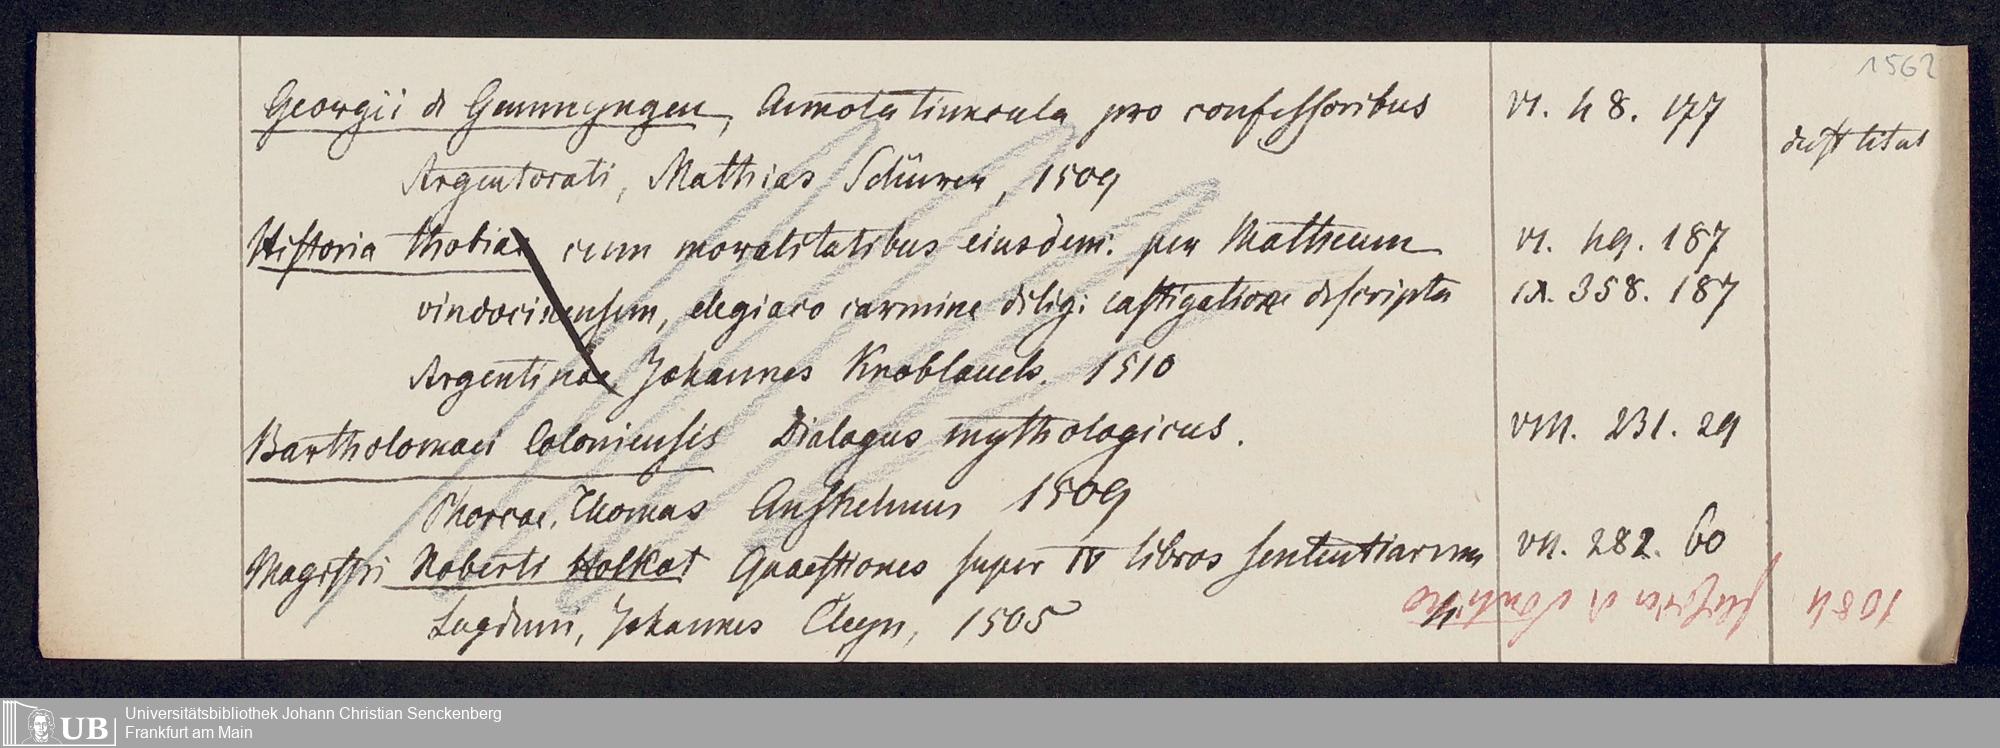 1562
Georgii de Gemmyngen, Annotatiuncula pro confessoribus VI. 48. 177
Argentorati, Mathias Schürer, 1509
Historia thobiae cum moralitatibus eiusdem: per Matheum VI. 49. 187
vindocinensem, elegiaco carmine dilig: castigatione descripta IX. 358. 187
Argentinae, Johannes Knoblauch. 1510
Bartholomaei Coloniensis Dialogus mythologicus. VIII. 231. 29
Phorcae, Thomas Anshelmus 1509
Magistri Roberti Holkot Quaestiones super IV libros sententiarum VII. 282. 60
Lugduni, Johannes Cleyn, 1505
1084
Universitätsbibliothek Johann Christian Senckenberg
Frankfurt am Main
UB